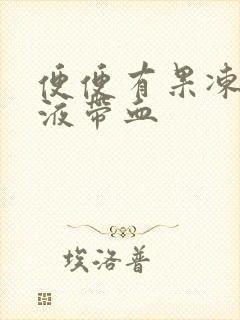 便便有果冻
液带血
埃洛普